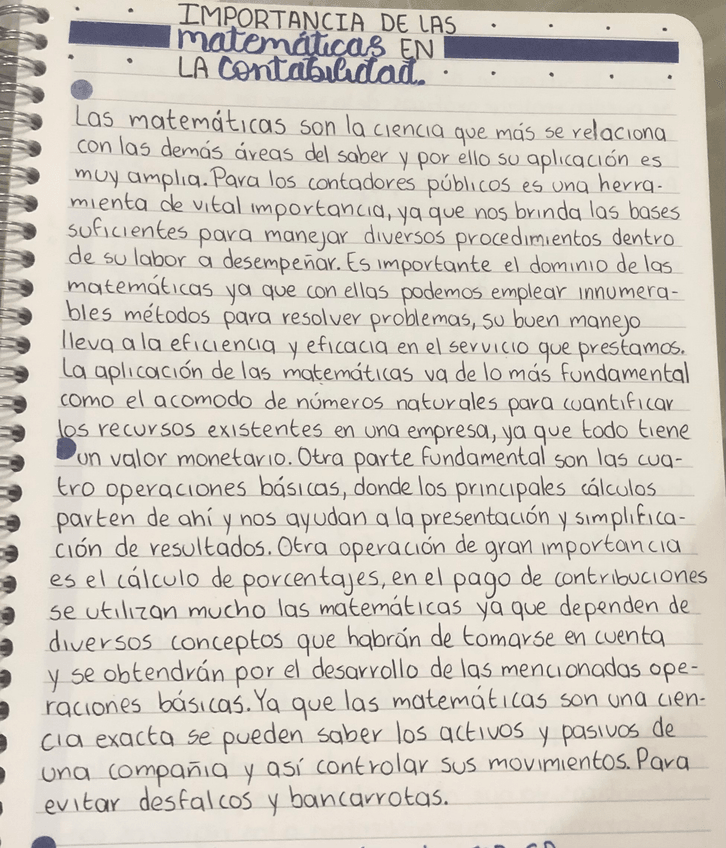 IMPORTANCIA DE LAS
matemáticas EN
LA contabilidad.
Las matemáticas son la ciencia que más se relaciona
con las demás áreas del saber y por ello su aplicación es
muy amplia. Para los contadores públicos es una herra-
mienta de vital importancia, ya que nos brinda las bases
suficientes para manejar diversos procedimientos dentro
de su labor a desempeñar. Es importante el dominio de las
matemáticas ya que con ellas podemos emplear innumera-
bles métodos para resolver problemas, su buen manejo
lleva a la eficiencia y eficacia en el servicio que prestamos.
La aplicación de las matemáticas va de lo más fundamental
como el acomodo de números naturales para cuantificar
los recursos existentes en una empresa, ya que todo tiene
un valor monetario. Otra parte fundamental son las cua-
tro operaciones básicas, donde los principales cálculos
parten de ahí y nos ayudan a la presentación y simplifica-
ción de resultados. Otra operación de gran importancia
es el cálculo de porcentajes, en el pago de contribuciones
se utilizan mucho las matemáticas ya que dependen de
diversos conceptos que habrán de tomarse en cuenta
y se obtendrán por el desarrollo de las mencionadas ope-
raciones básicas. Ya que las matemáticas son una cien-
cia exacta se pueden saber los activos y pasivos de
una compañia y así controlar sus movimientos. Para
evitar desfalcos y bancarrotas.